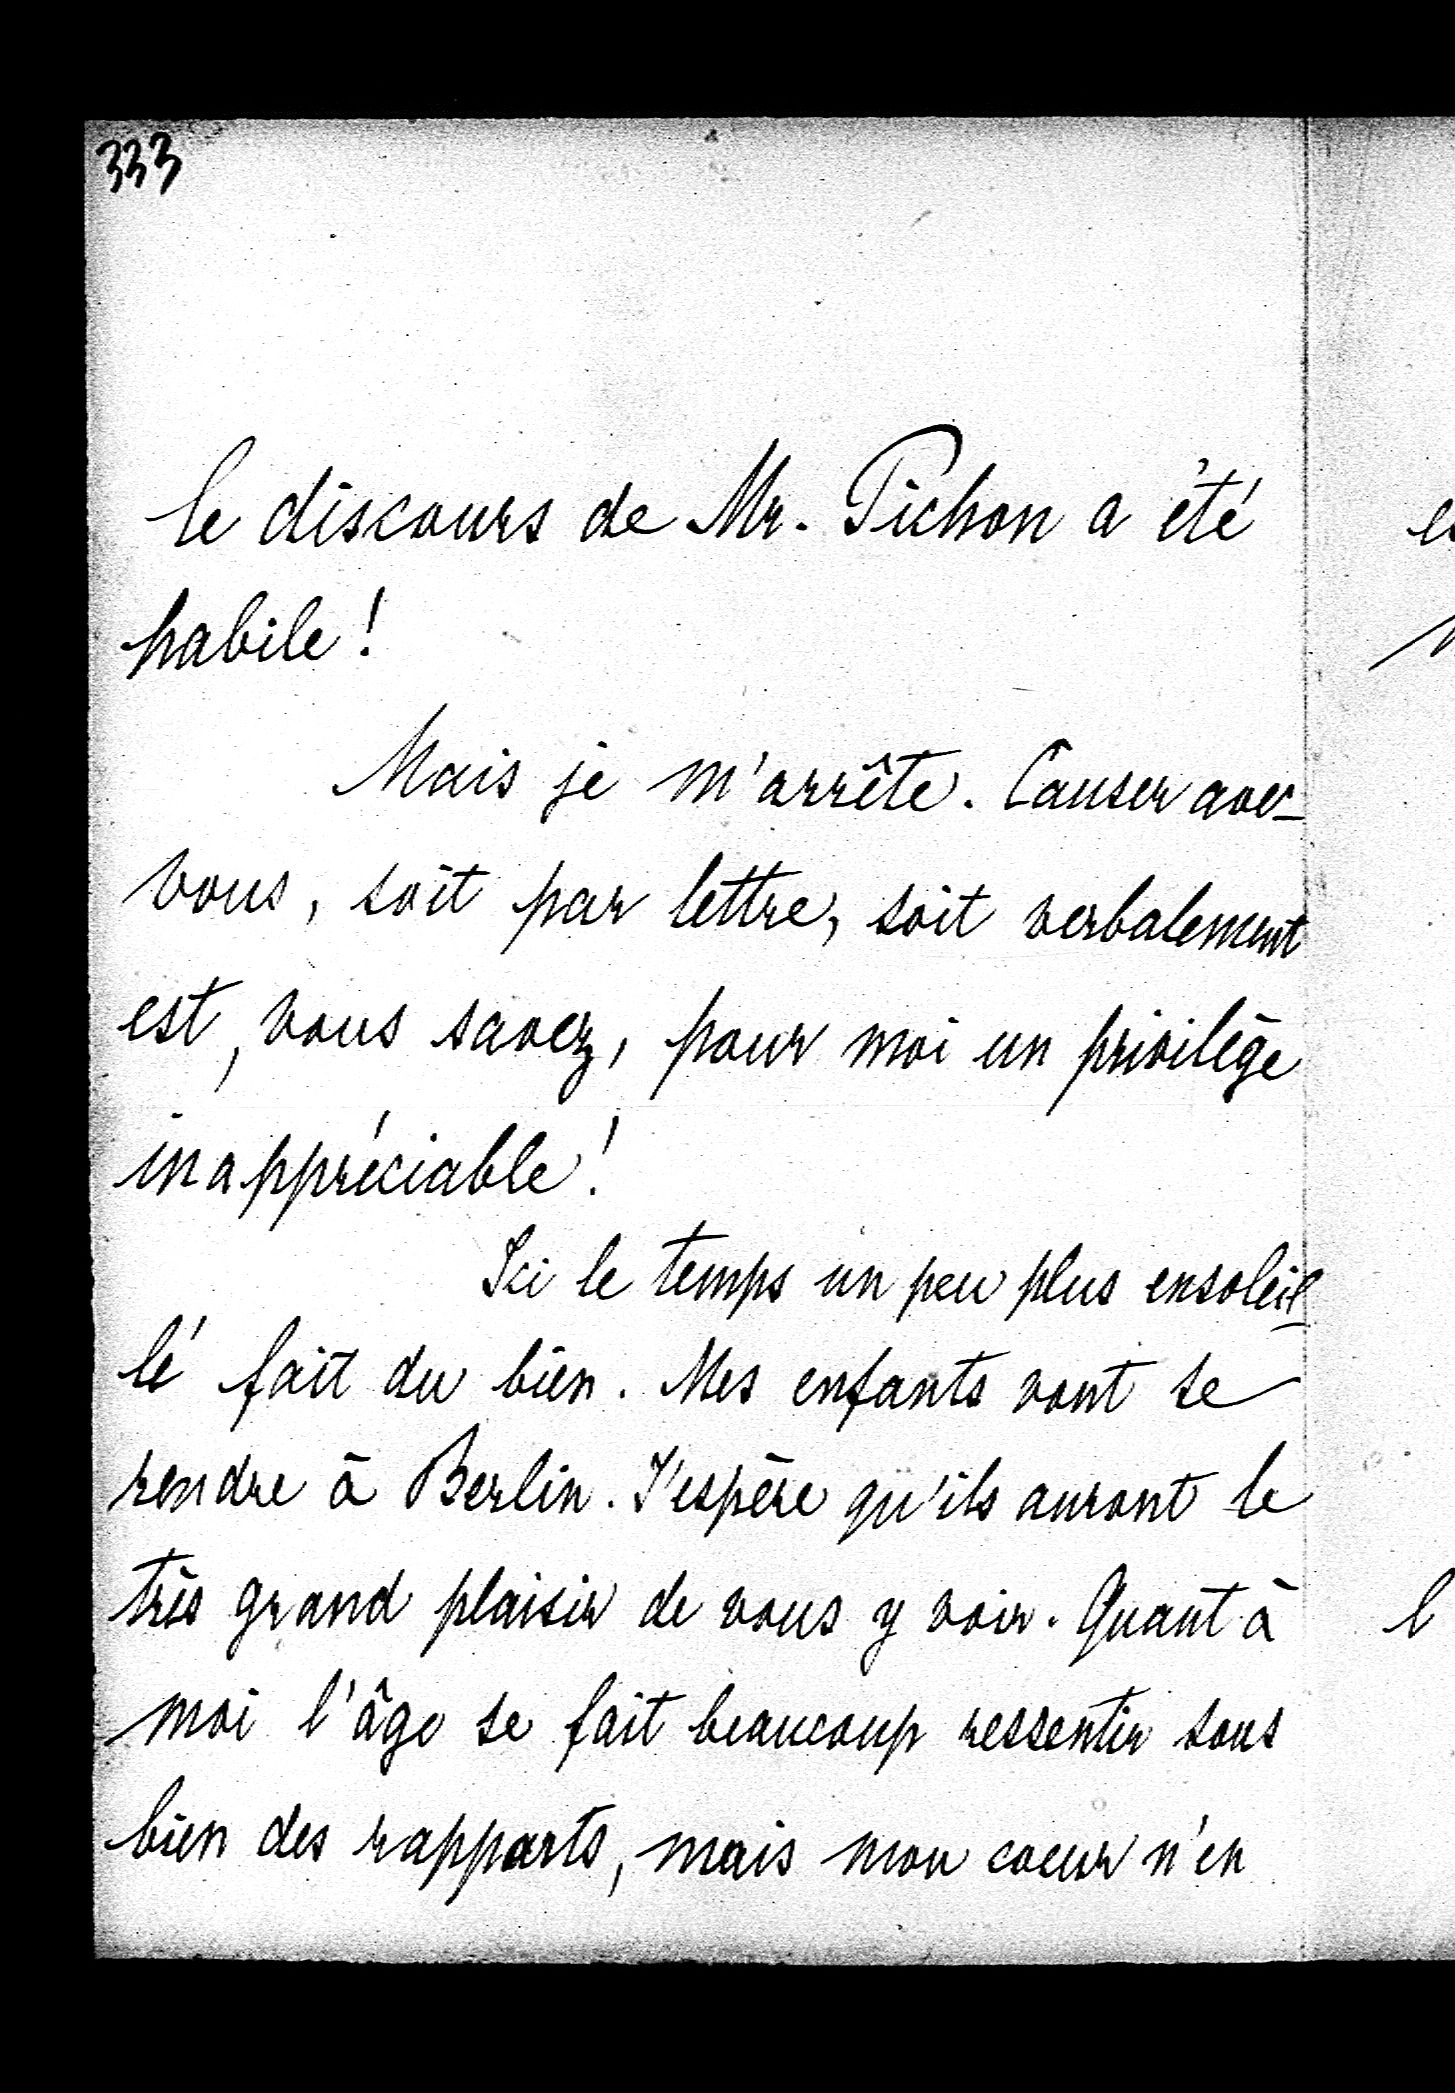 333
le discours de Mr. Pichon a été
habile!
Mais je m'arrête. Causer avec
vous, soit par lettre, soit verbalement
est, vous savez, pour moi un privilège
inappréciable!
Ici le temps un peu plus ensoleil
lé fait du bien. Mes enfants vont se
rendre à Berlin. J'espère qu'ils auront le
très grand plaisir de vous y voir. Quant à
moi l'âge se fait beaucoup ressentir sous
bien des rapports, mais mon coeur n'en